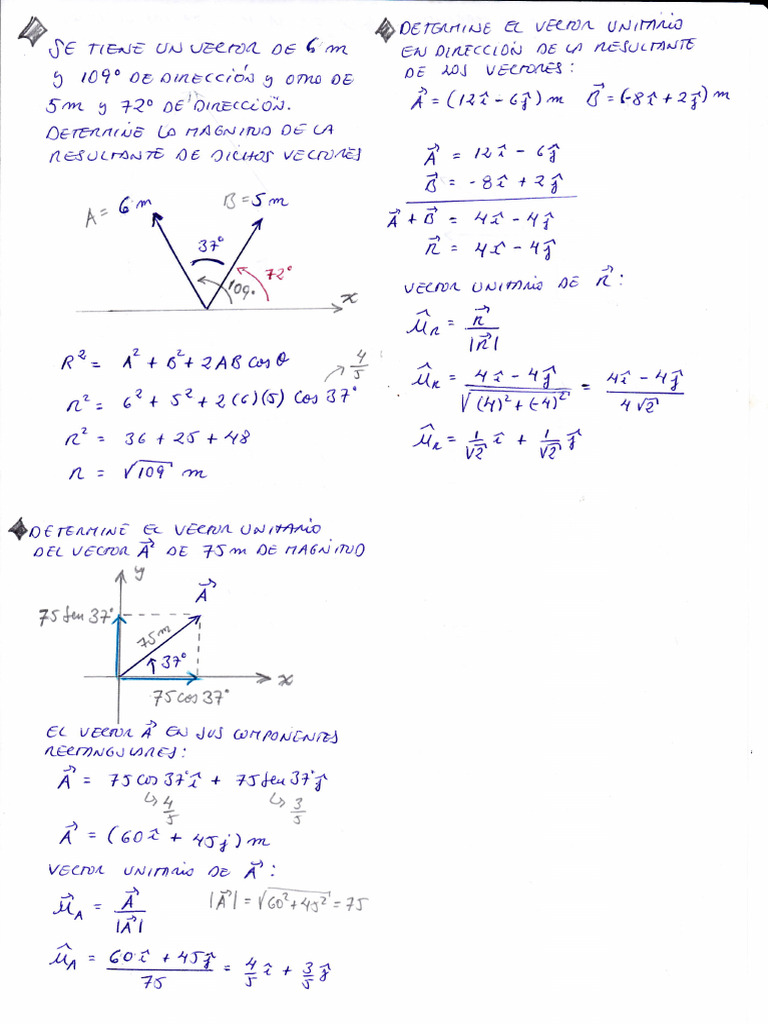 SE TIENE UN VECTOR DE 6 m
y 109° DE DIRECCIÓN y OTRO DE
5m y 72° DE DIRECCIÓN.
DETERMINE LA MAGNITUD DE LA
RESULTANTE DE DICHOS VECTORES
A = 6 m
B = 5 m
37°
72°
109°
x
R² = A² + B² + 2AB cos θ
4/5
r² = 6² + 5² + 2(6)(5) cos 37°
r² = 36 + 25 + 48
r = √109 m
DETERMINE EL VECTOR UNITARIO
DEL VECTOR A⃗ DE 75m DE MAGNITUD
y
A⃗
75 sen 37°
75 m
37°
x
75 cos 37°
EL VECTOR A⃗ EN SUS COMPONENTES
RECTANGULARES:
A⃗ = 75 cos 37° î + 75 sen 37° ĵ
↳ 4/5 ↳ 3/5
A⃗ = (60 î + 45 j) m
VECTOR UNITARIO DE A⃗ :
μ⃗_A = A⃗/|A⃗| |A⃗| = √(60² + 45²) = 75
μ̂_A = (60 î + 45 ĵ)/75 = 4/5 î + 3/5 ĵ
DETERMINE EL VECTOR UNITARIO
EN DIRECCIÓN DE LA RESULTANTE
DE LOS VECTORES:
A⃗ = (12 î - 6 ĵ) m B⃗ = (-8 î + 2 ĵ) m
A⃗ = 12 î - 6 ĵ
B⃗ = -8 î + 2 ĵ
A⃗ + B⃗ = 4 î - 4 ĵ
r⃗ = 4 î - 4 ĵ
VECTOR UNITARIO DE r⃗ :
μ̂_R = r⃗/|r⃗|
μ̂_R = (4 î - 4 ĵ)/√((4)² + (-4)²) = (4 î - 4 ĵ)/(4√2)
μ̂_R = 1/√2 î + 1/√2 ĵ